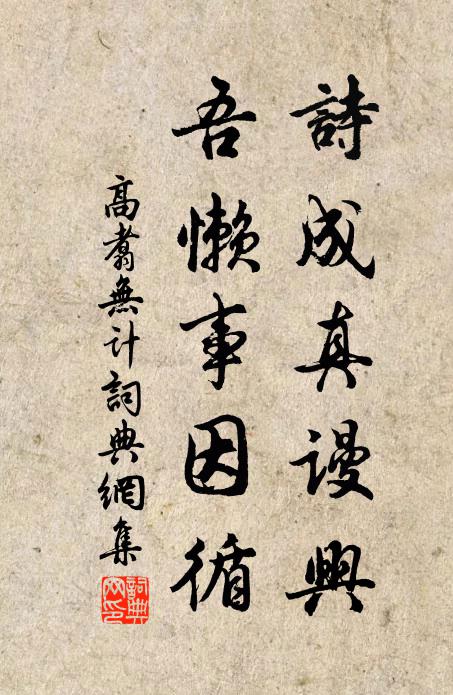 詩成真謾興
吾懶事因循
高翥無計詞典網集
詞典
网印